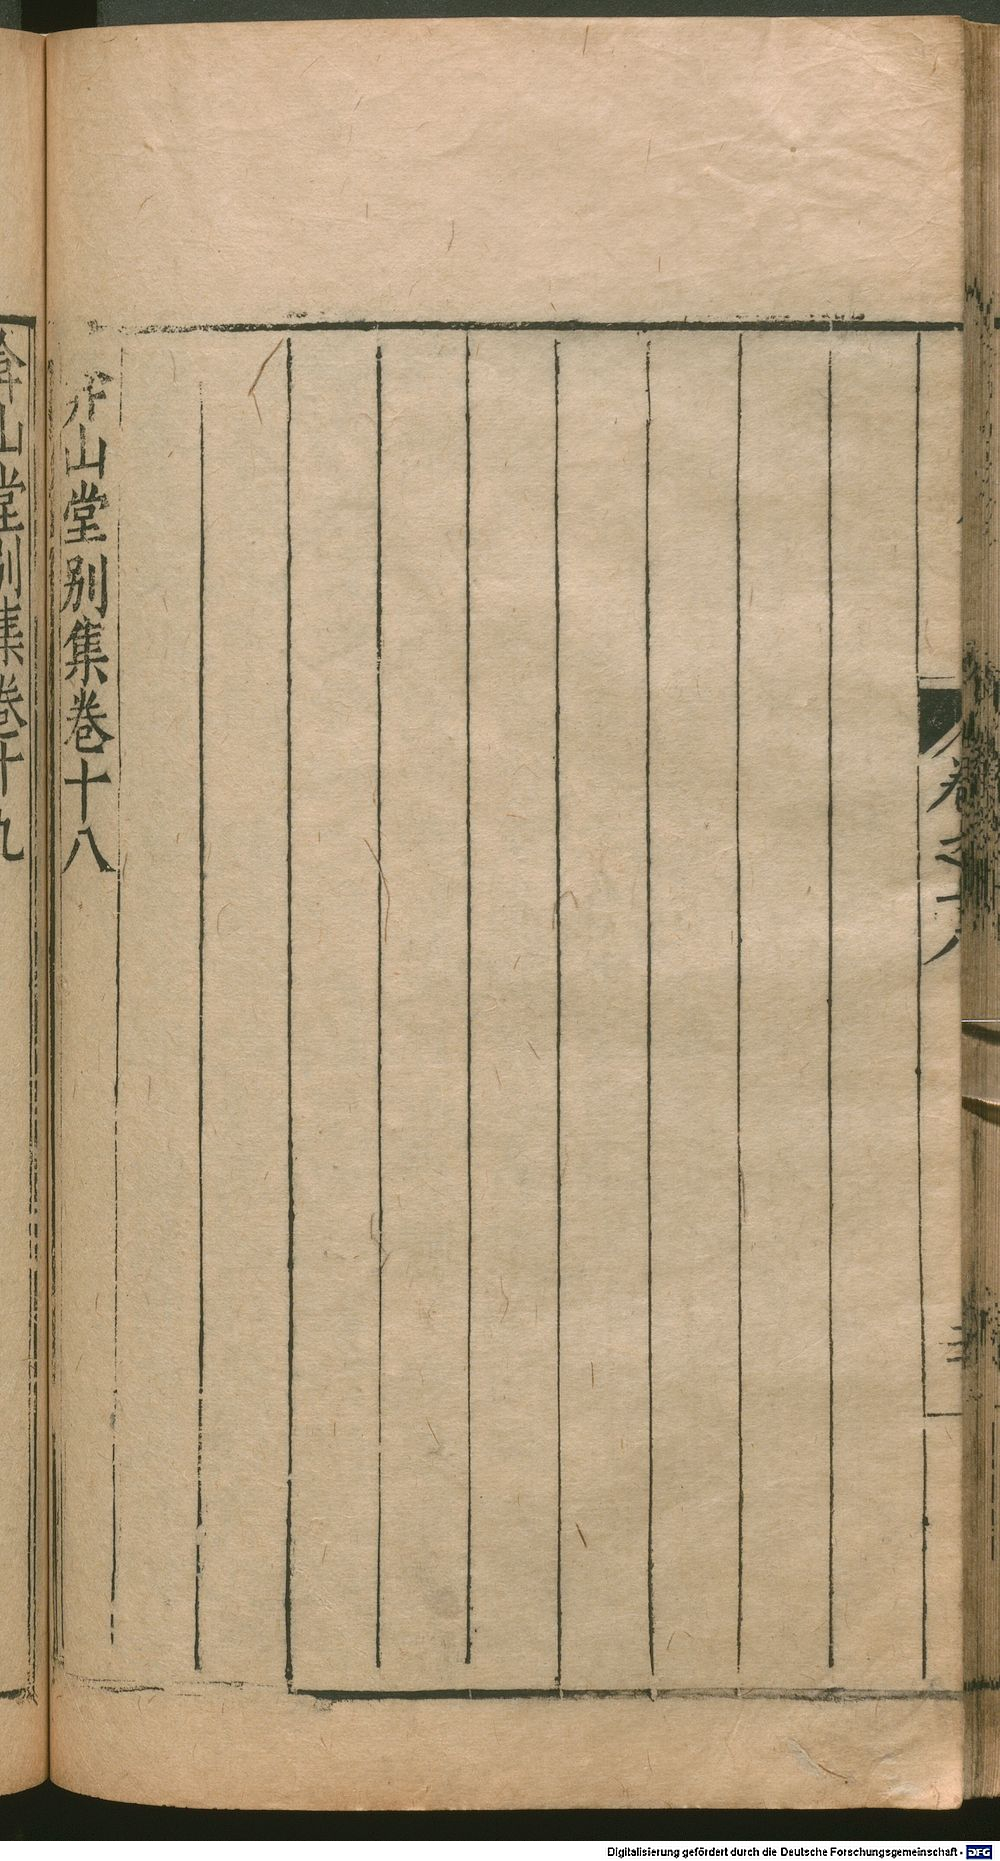 卷之十八
弇山堂別集卷十八
弇山堂別集卷十九
Digitalisierung gefördert durch die Deutsche Forschungsgemeinschaft - DFG